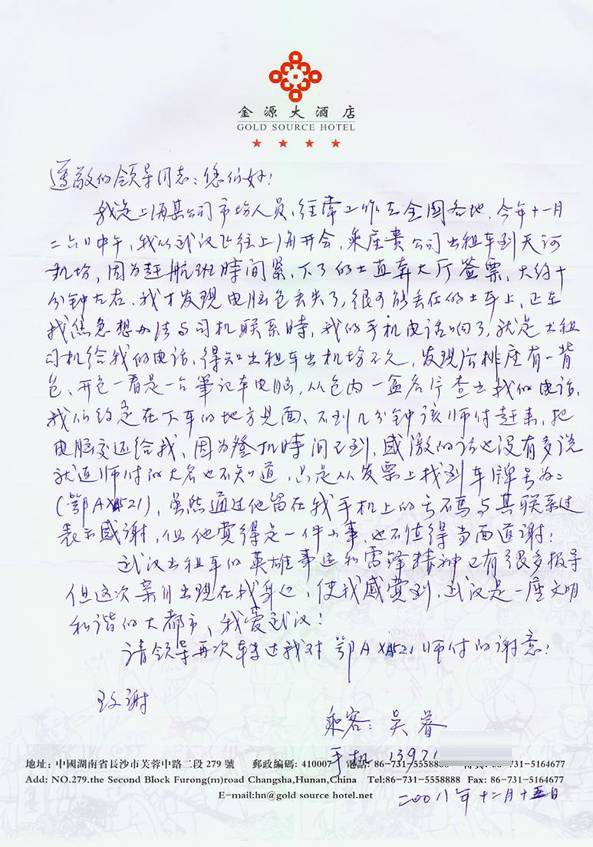 金源大酒店
GOLD SOURCE HOTEL
尊敬的领导同志：您们好！
我是上海某公司市场人员，经常工作在全国各地，今年十一月
二六日中午，我从武汉飞往上海开会，乘座贵公司出租车到天河
机场，因为赶航班時间紧，下了的士直奔大厅签票，大约十
分钟左右，我才发现电脑包丢失了，很可能丢在的士车上，正在
我焦急想办法与司机联系時，我的手机电话响了，就是出租
司机给我的电话，得知出租车出机场不久，发现后排座有一背
包，开包一看是一台筆记本电脑，从包内一盒名片查出我们电话，
我们约定在下车的地方见面，不到几分钟该师付赶来，把
电脑交还给我，因为登机時间已到，感激的话也没有多说
就连师付的大名也不知道，只是从发票上找到车牌号为：
（鄂A 521），虽然通过他留在我手机上的号码与其联系过
表示感谢，但他觉得是一件小事，也不值得当面道谢！
武汉出租车的英雄事迹和雷锋精神已有很多报导
但这次亲自出现在我身边，使我感觉到，武汉是一座文明
和谐的大都市，我爱武汉！
请领导再次转达我对鄂A 521师付的谢意！
致谢
乘客：吴睿
手机 13971
地址：中國湖南省長沙市芙蓉中路二段 279 號 郵政編碼：410007 電話：86-731-5558888 傳真：86-731-5164677
Add: NO.279.the Second Block Furong(m)road Changsha,Hunan,China Tel:86-731-5558888 Fax: 86-731-5164677
E-mail:hn@gold source hotel.net
二00八年十二月十五日